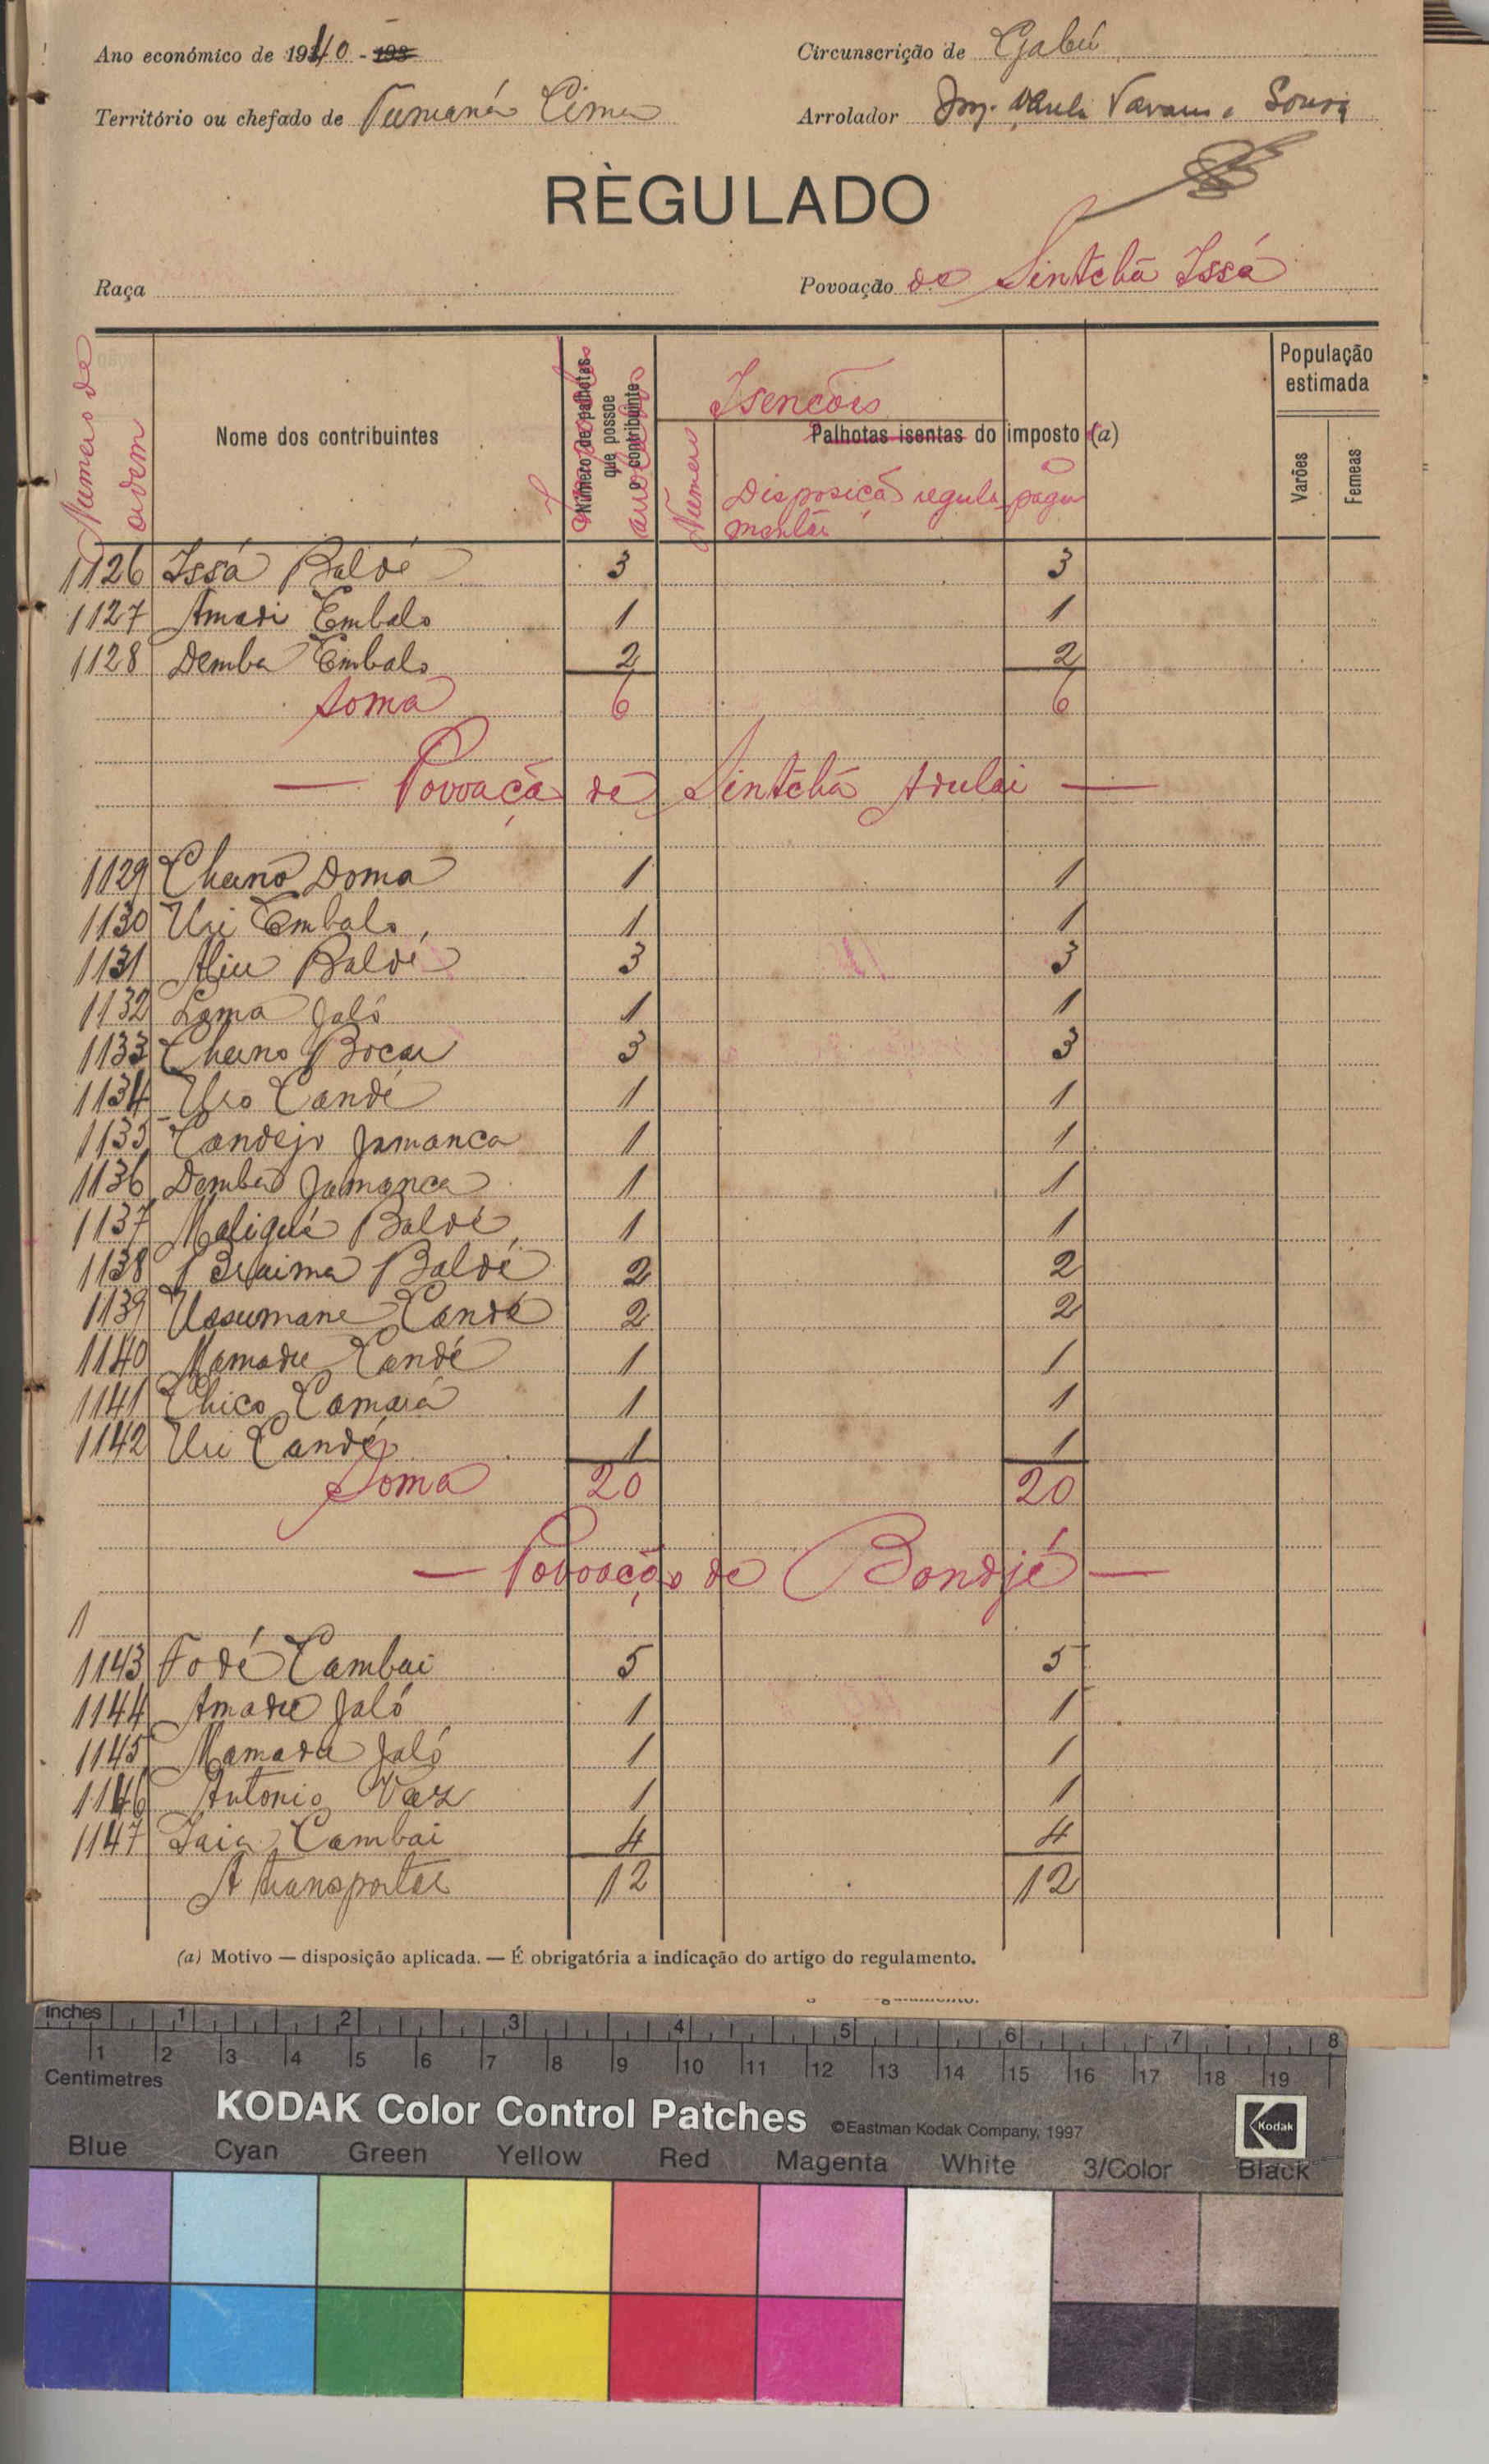 Ano económico de 1940 - 193
Circunscrição de Gabú
Território ou chefado de Tumaná Cima
Arrolador Sousa
RÈGULADO
Raça
Povoação de Sintchã Issá
Numero de ordem
Nome dos contribuintes
Número de palhotas que possue o contribuinte
Isenções
Palhotas isentas do imposto (a)
Numero
Disposição regula mentar
a pagar
População estimada
Varões
Femeas
1126 Issá Baldé 3 3
1127 Amadi Embalo 1 1
1128 Demba Embalo 2 2
Soma 6 6
— Povoação de Sintchã Adulai —
1129 Cherno Doma 1 1
1130 Uri Embalo 1 1
1131 Aliu Baldé 3 3
1132 Lama Jaló 1 1
1133 Cherno Bocar 3 3
1134 Uro Candé 1 1
1135 Candejo Jamanca 1 1
1136 Demba Jamanca 1 1
1137 Maliqué Baldé 1 1
1138 Braima Baldé 2 2
1139 Ussumane Candé 2 2
1140 Mamadu Candé 1 1
1141 Chico Camará 1 1
1142 Uri Candé 1 1
Soma 20 20
— Povoação de Bondjé —
1
1143 Fodé Cambai 5 5
1144 Amadu Jaló 1 1
1145 Mamadu Jaló 1 1
1146 Antonio Vaz 1 1
1147 Iaia Cambai 4 4
A transportar 12 12
(a) Motivo — disposição aplicada. — É obrigatória a indicação do artigo do regulamento.
Inches 1 2 3 4 5 6 7 8
1 2 3 4 5 6 7 8 9 10 11 12 13 14 15 16 17 18 19
Centimetres
KODAK Color Control Patches ©Eastman Kodak Company, 1997 Kodak
Blue Cyan Green Yellow Red Magenta White 3/Color Black